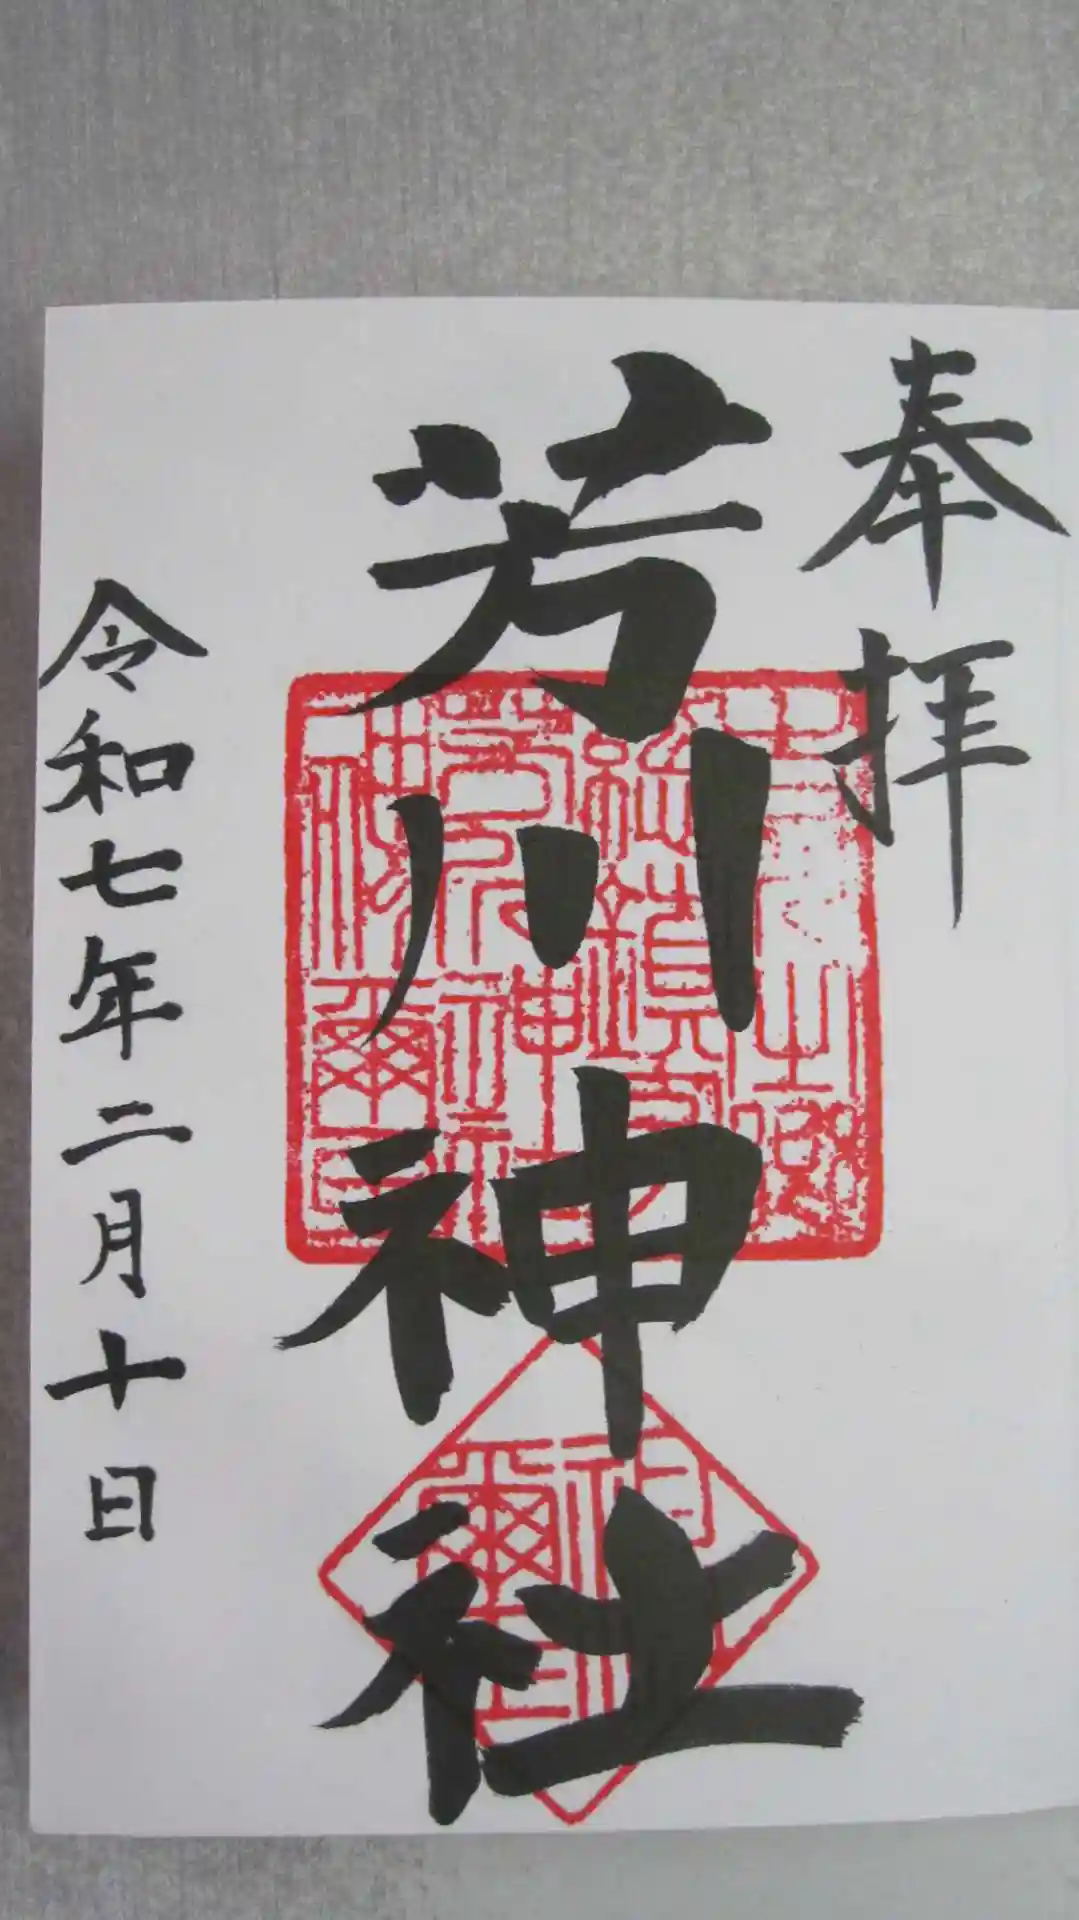 奉拝
芳川神社
令和七年二月十日